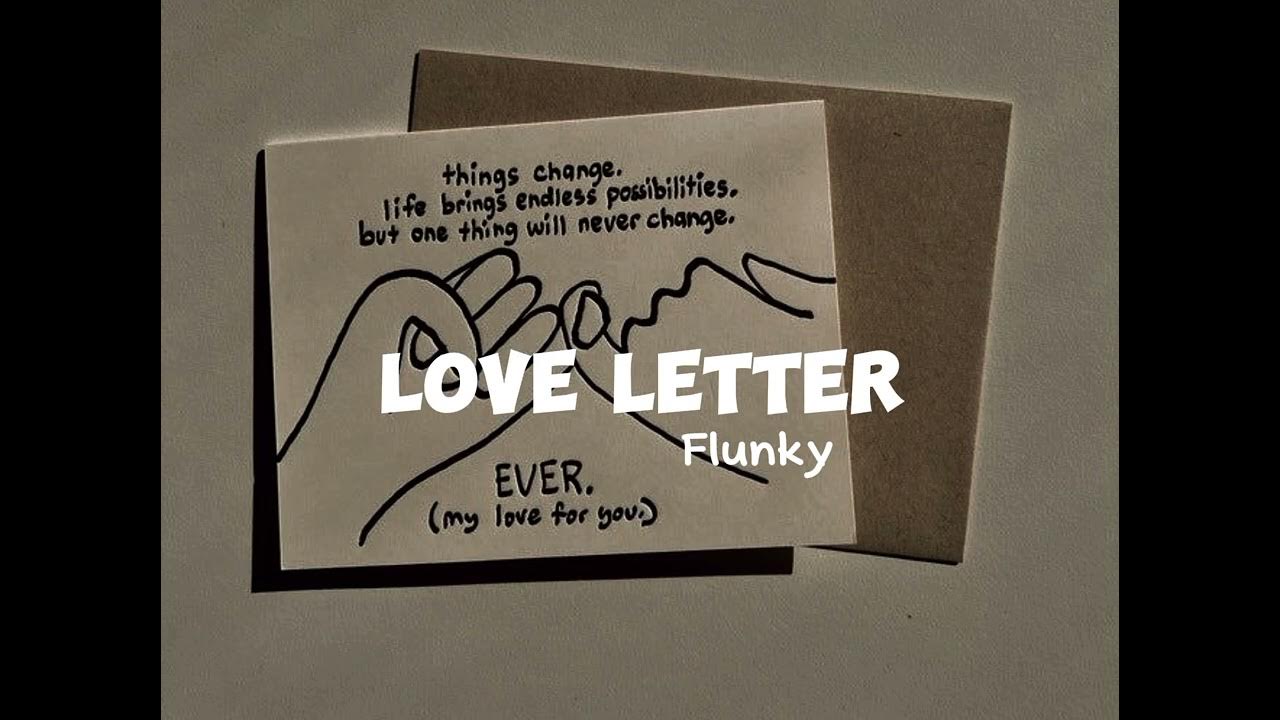 things change.
life brings endless possibilities.
but one thing will never change.
LOVE LETTER
Flunky
EVER.
(my love for you.)